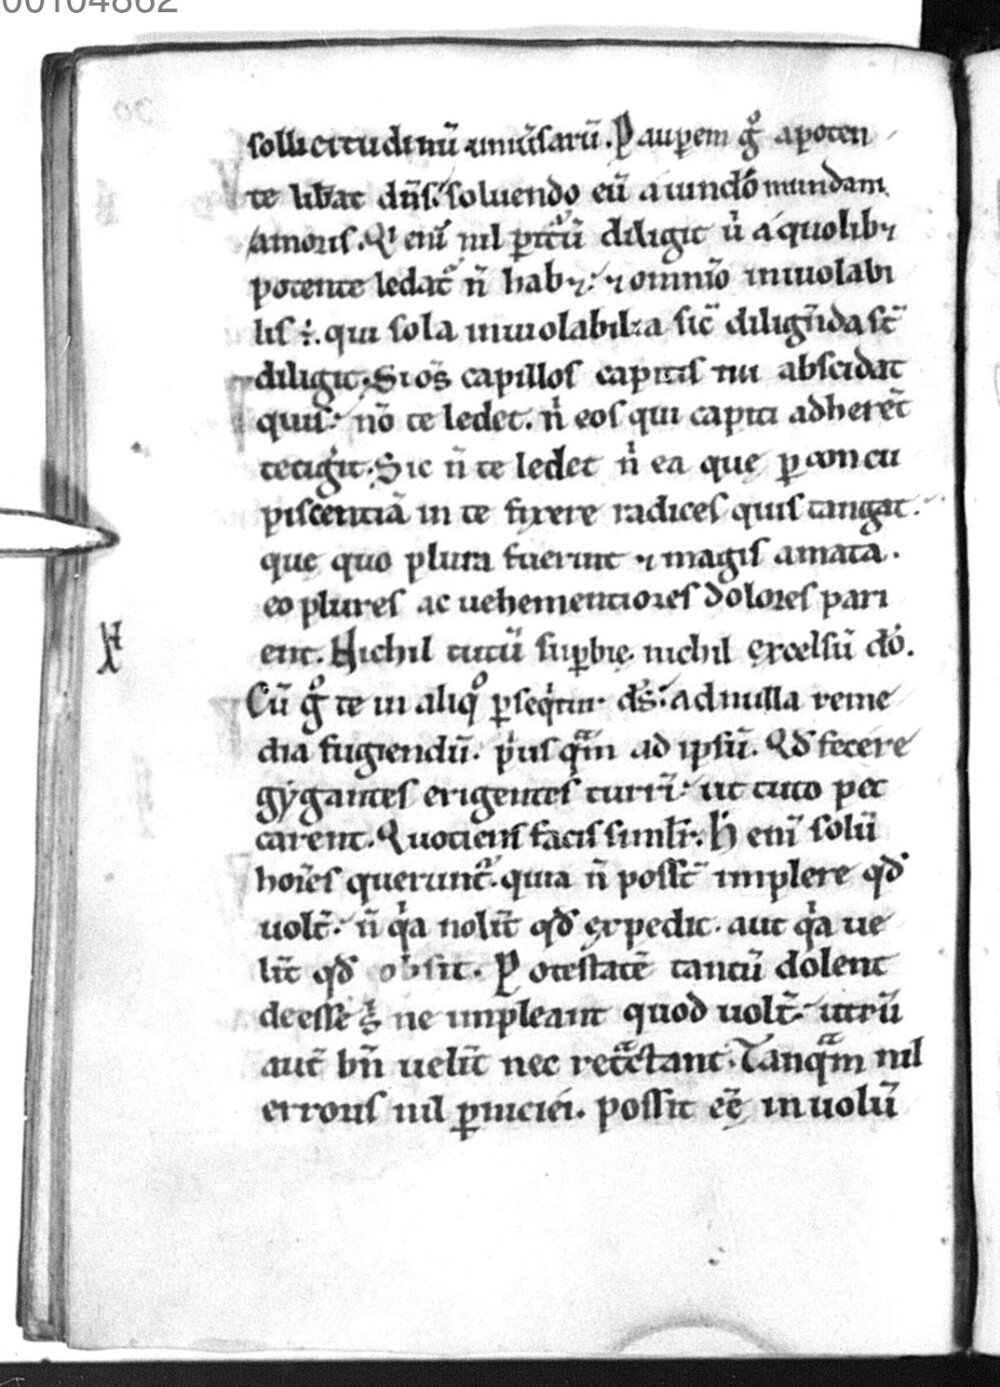 00104862
sollicitudinū uniu͛saꝝ. Paup̱em g̊ a poten
te lib̄at dn̄s. soluendo eū a uinclo̓ mundani
amoris. Qͥ eni͂ nil ꝑit̾ū diligit u̓ a quolibꝫ
potente ledat̾ n̄ habꝫ. ⁊ omnīo inuiolabi
lis .i. qui sola inuiolabilia sic̄ diligēda st̄
diligit. Si oēs capillos capitis tui abscidat
quis. nō te ledet. n̓ eos qui capiti adheret̄
tetigit. Sic n̄ te ledet n̓ ea que ꝑ concu
piscentiā in te fixere radices quis tangat.
que quo plura fuerint ⁊ magis amata.
eo plures ac uehementiores dolores pari
ent. Nichil tutū suꝑbię. nichil excelsū dō.
Cū g̊ te in aliqͦ ꝑseqͥtur d̄s. ad nulla reme
dia fugiendū. p̓us qᵃm ad ipsū. Qd̄ fecere
gygantes erigentes turrī. ut tuto pec
carent. Quociens facis simlr̄. H̓ enī solū
hoīes querunt̾. quia n̄ poss̄t implere qd̄
uolt̄. n̄ qͥa nolūt qd̄ expedit. aut qͥa ue
līt qd̄ obsit. Potestatē tantū dolent
deesse s̓ ne impleant quod uolt̄. utrū
aut̄ bn̄ uelīt nec ret̾ctant. Tanqᵃm nil
erroris nil ꝑniciei. possit eē in uolū